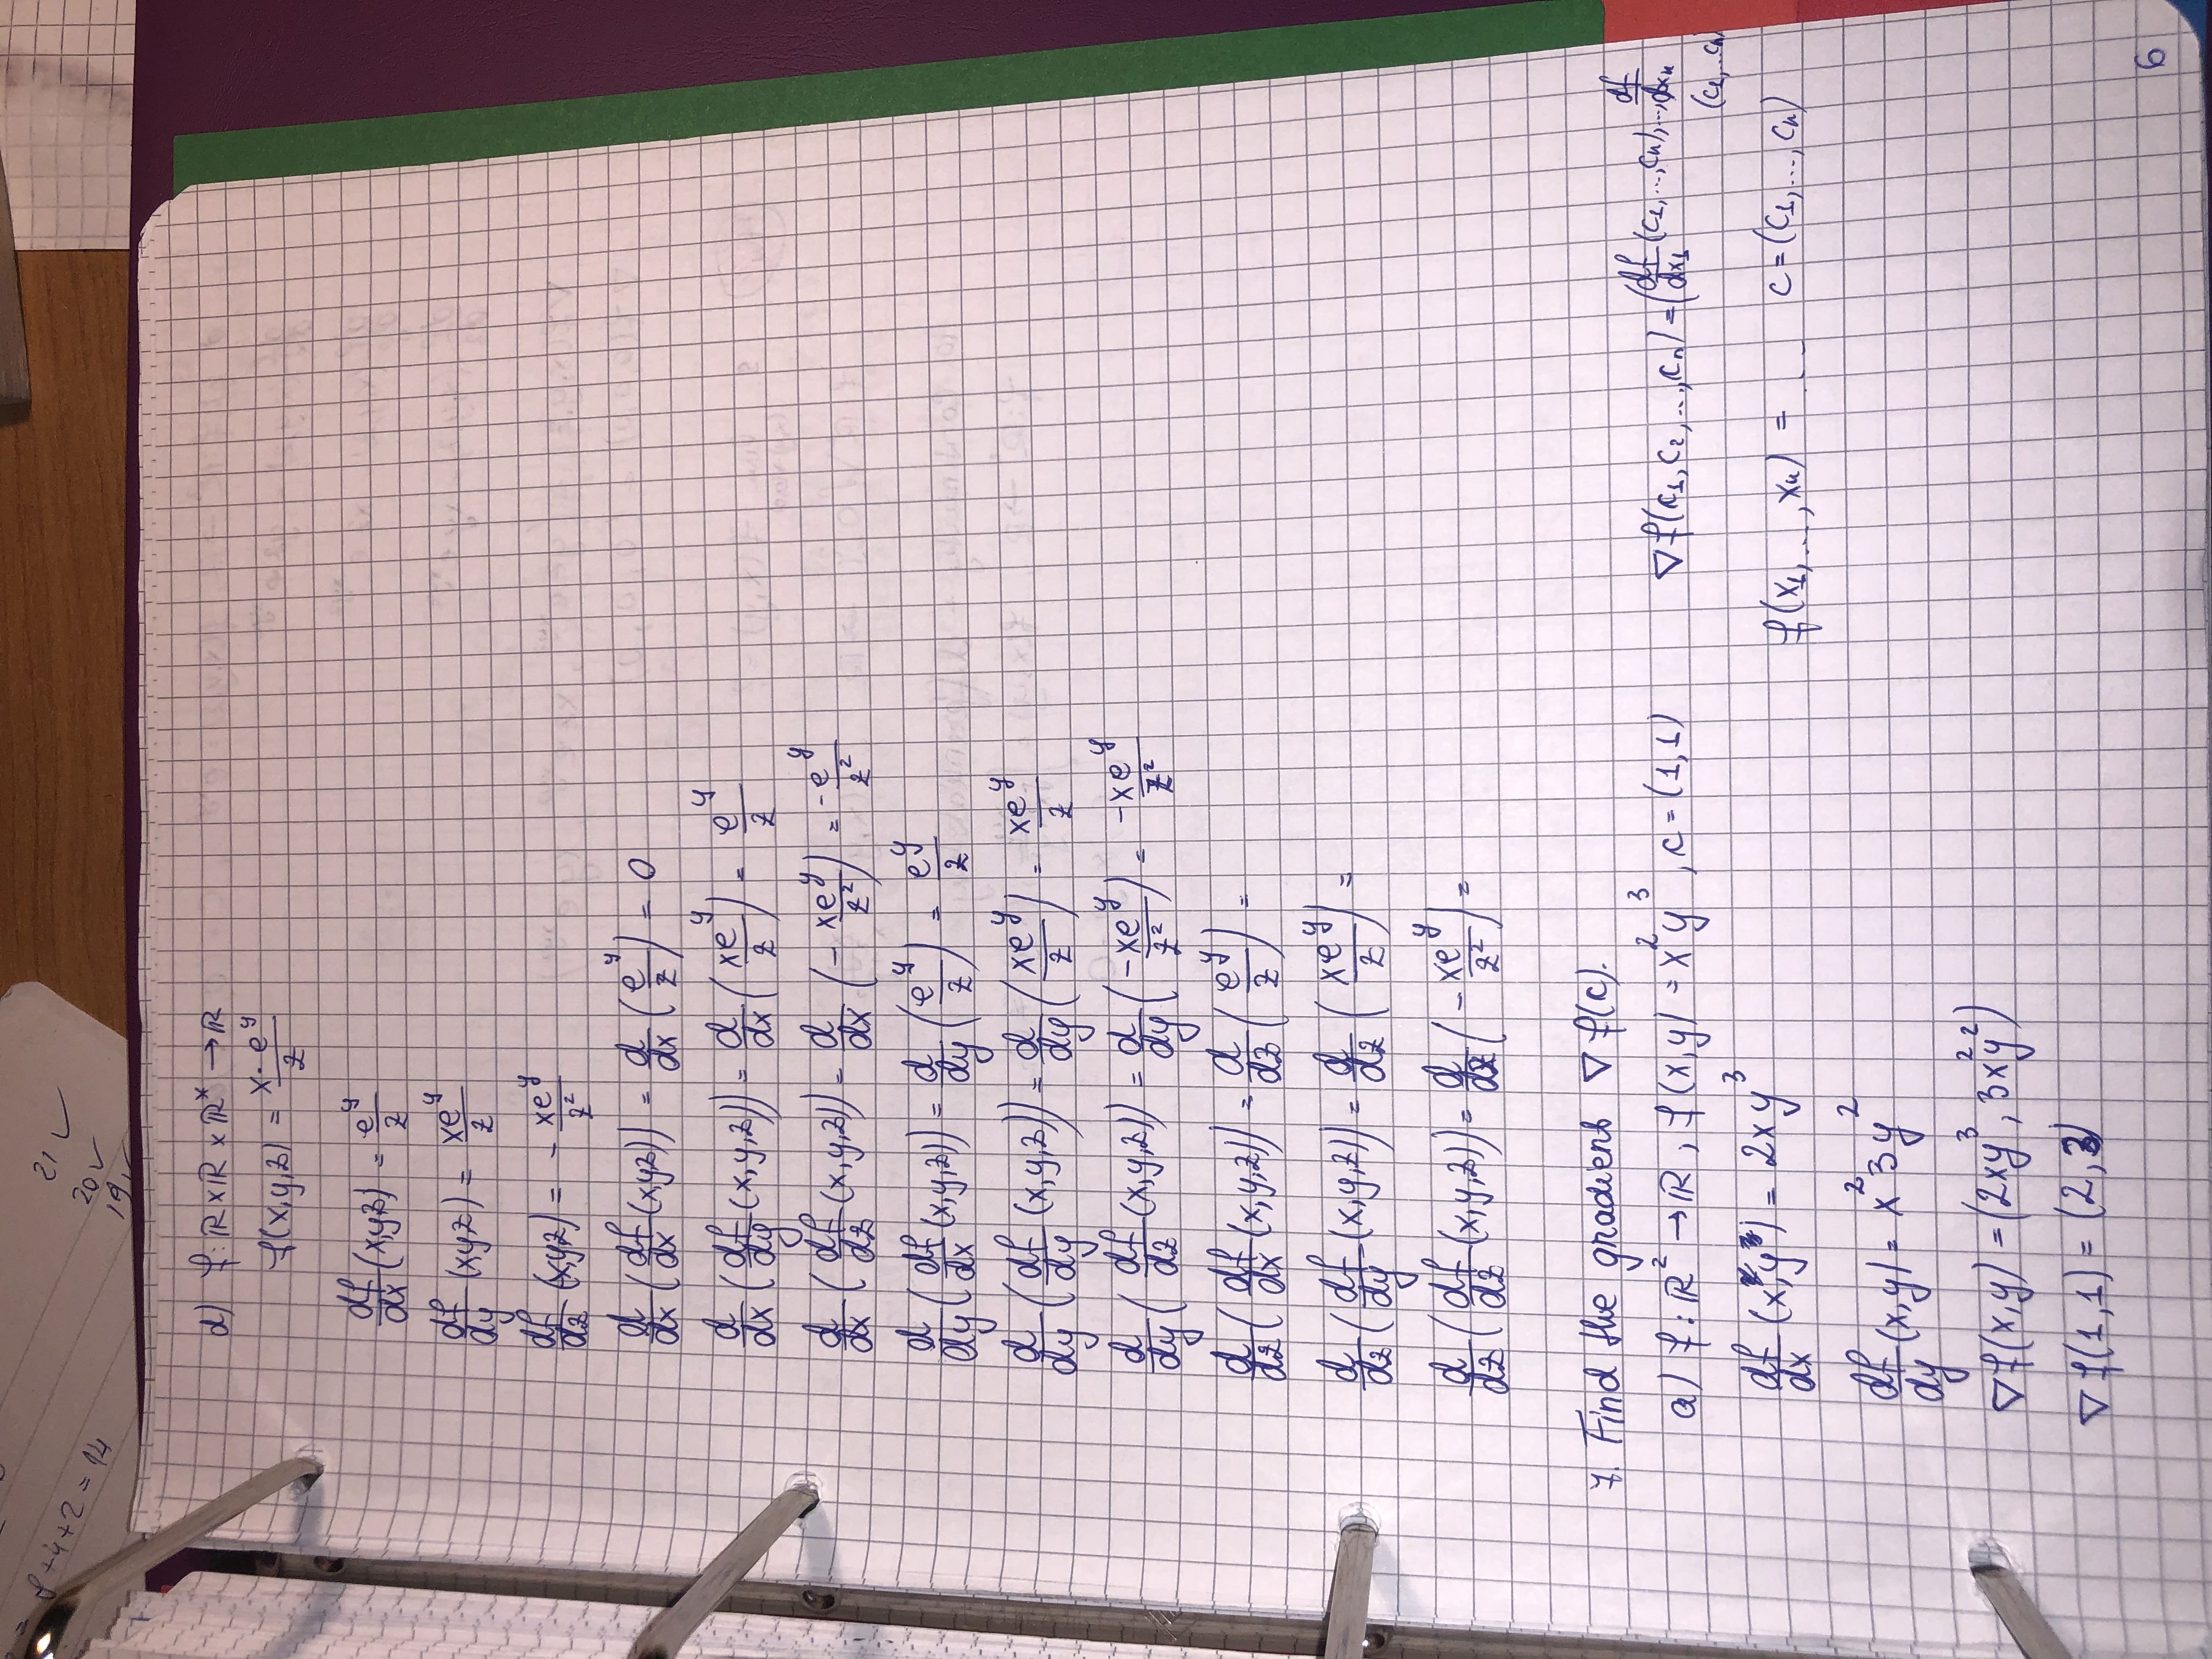 9+4+2=14
21 ✓
20 ✓
19 ✓
d) f: ℝ×ℝ×ℝˣ → ℝ
f(x,y,z) = x·e^y / z
df/dx (x,y,z) = e^y / z
df/dy (xyz) = xe^y / z
df/dz (x,yz) = - xe^y / z²
d/dx (df/dx (x,yz)) = d/dx (e^y / z) = 0
d/dx (df/dy (x,y,z)) = d/dx (xe^y / z) = e^y / z
d/dx (df/dz (x,y,z)) = d/dx (- xe^y / z²) = -e^y / z²
d/dy (df/dx (x,y,z)) = d/dy (e^y / z) = e^y / z
d/dy (df/dy (x,y,z)) = d/dy (xe^y / z) = xe^y / z
d/dy (df/dz (x,y,z)) = d/dy (-xe^y / z²) = -xe^y / z²
d/dz (df/dx (x,y,z)) = d/dz (e^y / z) =
d/dz (df/dy (x,y,z)) = d/dz (xe^y / z) =
d/dz (df/dz (x,y,z)) = d/dz (- xe^y / z²) =
7. Find the gradient ∇ f(c).
a) f: ℝ² → ℝ, f(x,y) = x²y³, c = (1,1)
∇ f(c₁,c₂,...,cₙ) = (df/dx₁ (c₁,...,cₙ),..., df/dxₙ
(c₁,...cₙ)
df/dx (x,y) = 2xy³
f(x₁,...,xₙ) = ... c = (c₁,...,cₙ)
df/dy (x,y) = x²3y²
∇ f(x,y) = (2xy³, 3x²y²)
∇ f(1,1) = (2,3)
6